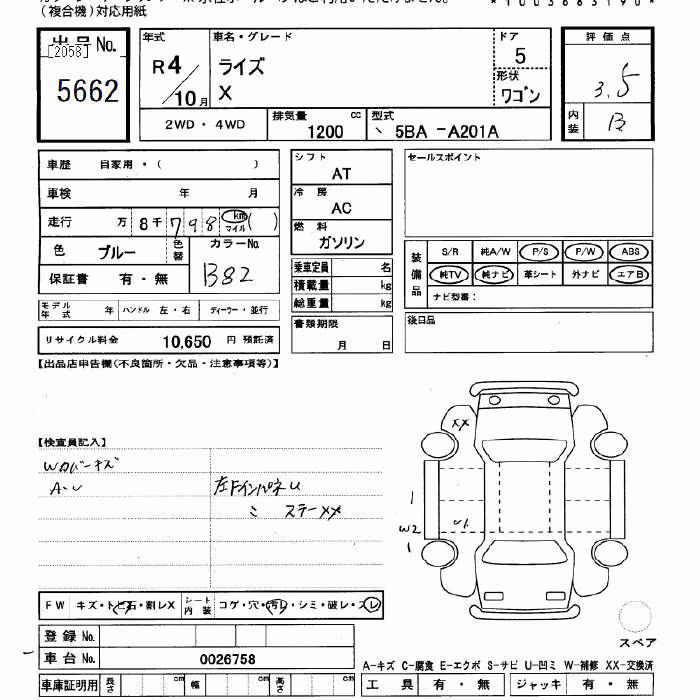 (複合機)対応用紙
出品No.
[2058]
5662
年式 車名・グレード ドア
R4/10月 ライズ 5
X 形状
ワゴン
2WD・4WD 排気量 1200 cc 型式 5BA-A201A
評価点
3.5
内装 B
車歴 自家用・( )
車検 年 月
走行 万 8千798 km マイル ( )
色 ブルー 色替 カラーNo.
保証書 有・無 B82
モデル年式 年 ハンドル 左・右 ディーラー・並行
リサイクル料金 10,650 円 預託済
シフト
AT
冷房
AC
燃料
ガソリン
乗車定員 名
積載量 kg
総重量 kg
書類期限
月 日
セールスポイント
装備品 S/R 純A/W P/S P/W ABS
純TV 純ナビ 革シート 外ナビ エアB
ナビ型番:
後日品
【出品店申告欄(不良箇所・欠品・注意事項等)】
【検査員記入】
Wカバーキズ
A・U 左FインパネU
ステーXX
XX
1
W2
U1
1
FW キズ・トビ石・割レX シート内装 コゲ・穴・汚レ・シミ・破レ・スレ
登録No.
車台No. 0026758
車庫証明用 長さ cm 幅 cm 高さ cm
スペア
A-キズ C-腐食 E-エクボ S-サビ U-凹ミ W-補修 XX-交換済
工具 有・無 ジャッキ 有・無